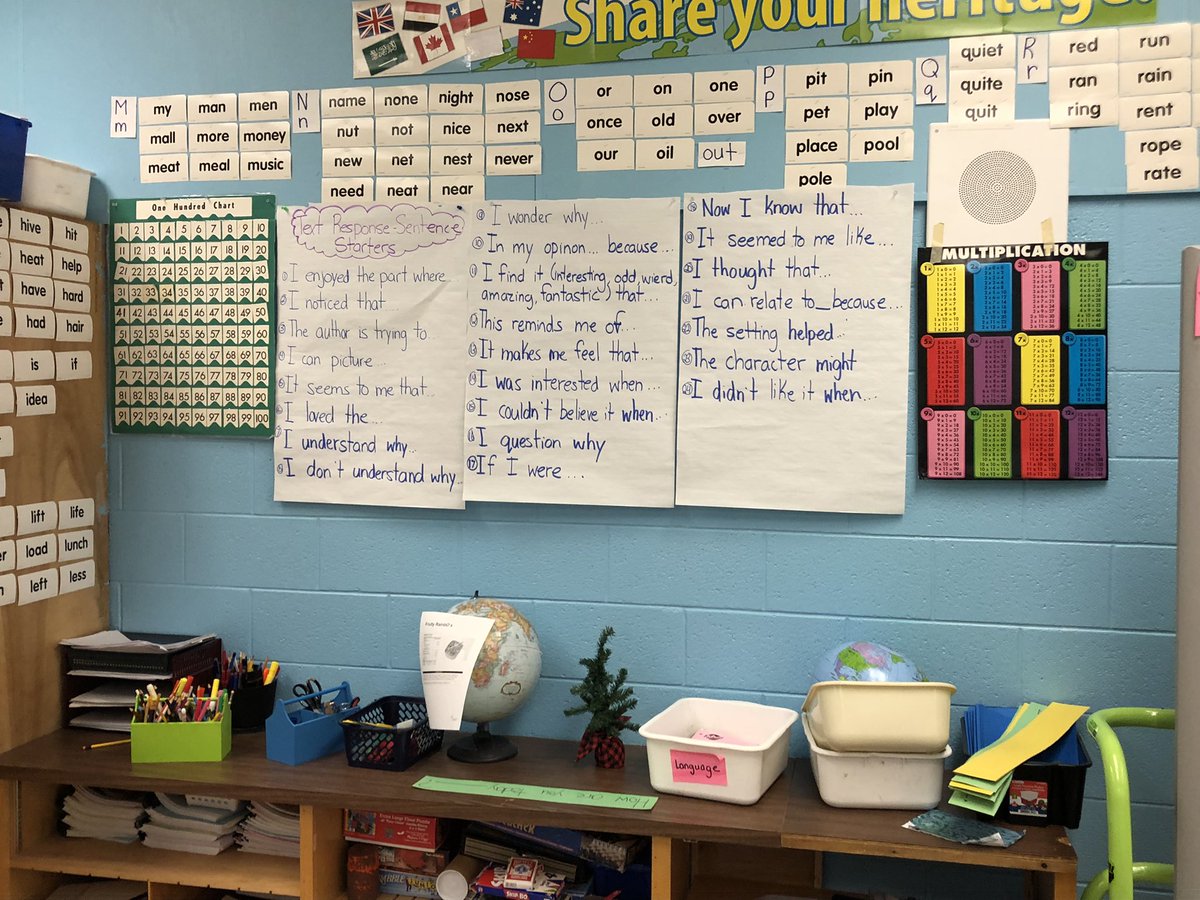 Share your heritage.
M m
my man men
mall more money
meat meal music
N n
name none night nose
nut not nice next
new net nest never
need neat near
O o
or on one
once old over
our oil out
P p
pit pin
pet play
place pool
pole
Q q
quiet
quite
quit
R r
red run
ran rain
ring rent
rope
rate
hive hit
heat help
have hard
had hair
is if
idea
lift life
load lunch
left less
One Hundred Chart
1 2 3 4 5 6 7 8 9 10
11 12 13 14 15 16 17 18 19 20
21 22 23 24 25 26 27 28 29 30
31 32 33 34 35 36 37 38 39 40
41 42 43 44 45 46 47 48 49 50
51 52 53 54 55 56 57 58 59 60
61 62 63 64 65 66 67 68 69 70
71 72 73 74 75 76 77 78 79 80
81 82 83 84 85 86 87 88 89 90
91 92 93 94 95 96 97 98 99 100
Text Response-Sentence
Starters
I enjoyed the part where..
I noticed that
The author is trying to
I can picture...
It seems to me that..
I loved the...
I understand why...
I don't understand why..
I wonder why...
In my opinon... because...
I find it (interesting, odd, wierd,
amazing, fantastic) that...
This reminds me of...
It makes me feel that...
I was interested when...
I couldn't believe it when...
I question why
If I were...
Now I know that...
It seemed to me like....
I thought that...
I can relate to_because...
The setting helped..
The character might
I didn't like it when...
MULTIPLICATION
Language
How are you today
SKIP-BO